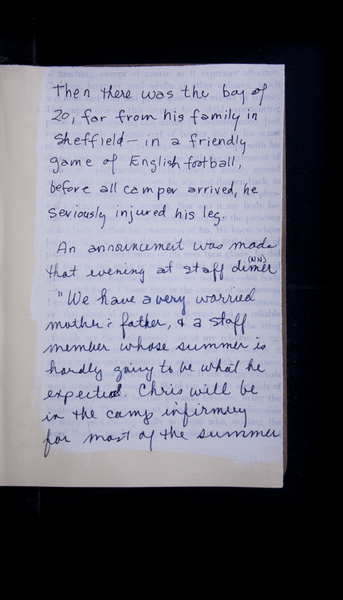 Then there was the boy of
20, far from his family in
Sheffield – in a friendly
game of English football,
before all camper arrived, he
seriously injured his leg.
An announcement was made
(NN)
that evening at staff diner
"We have a very worried
mother & father, & a staff
member whose summer is
hardly going to be what he
expected. Chris will be
in the camp infirmry
for most of the summer